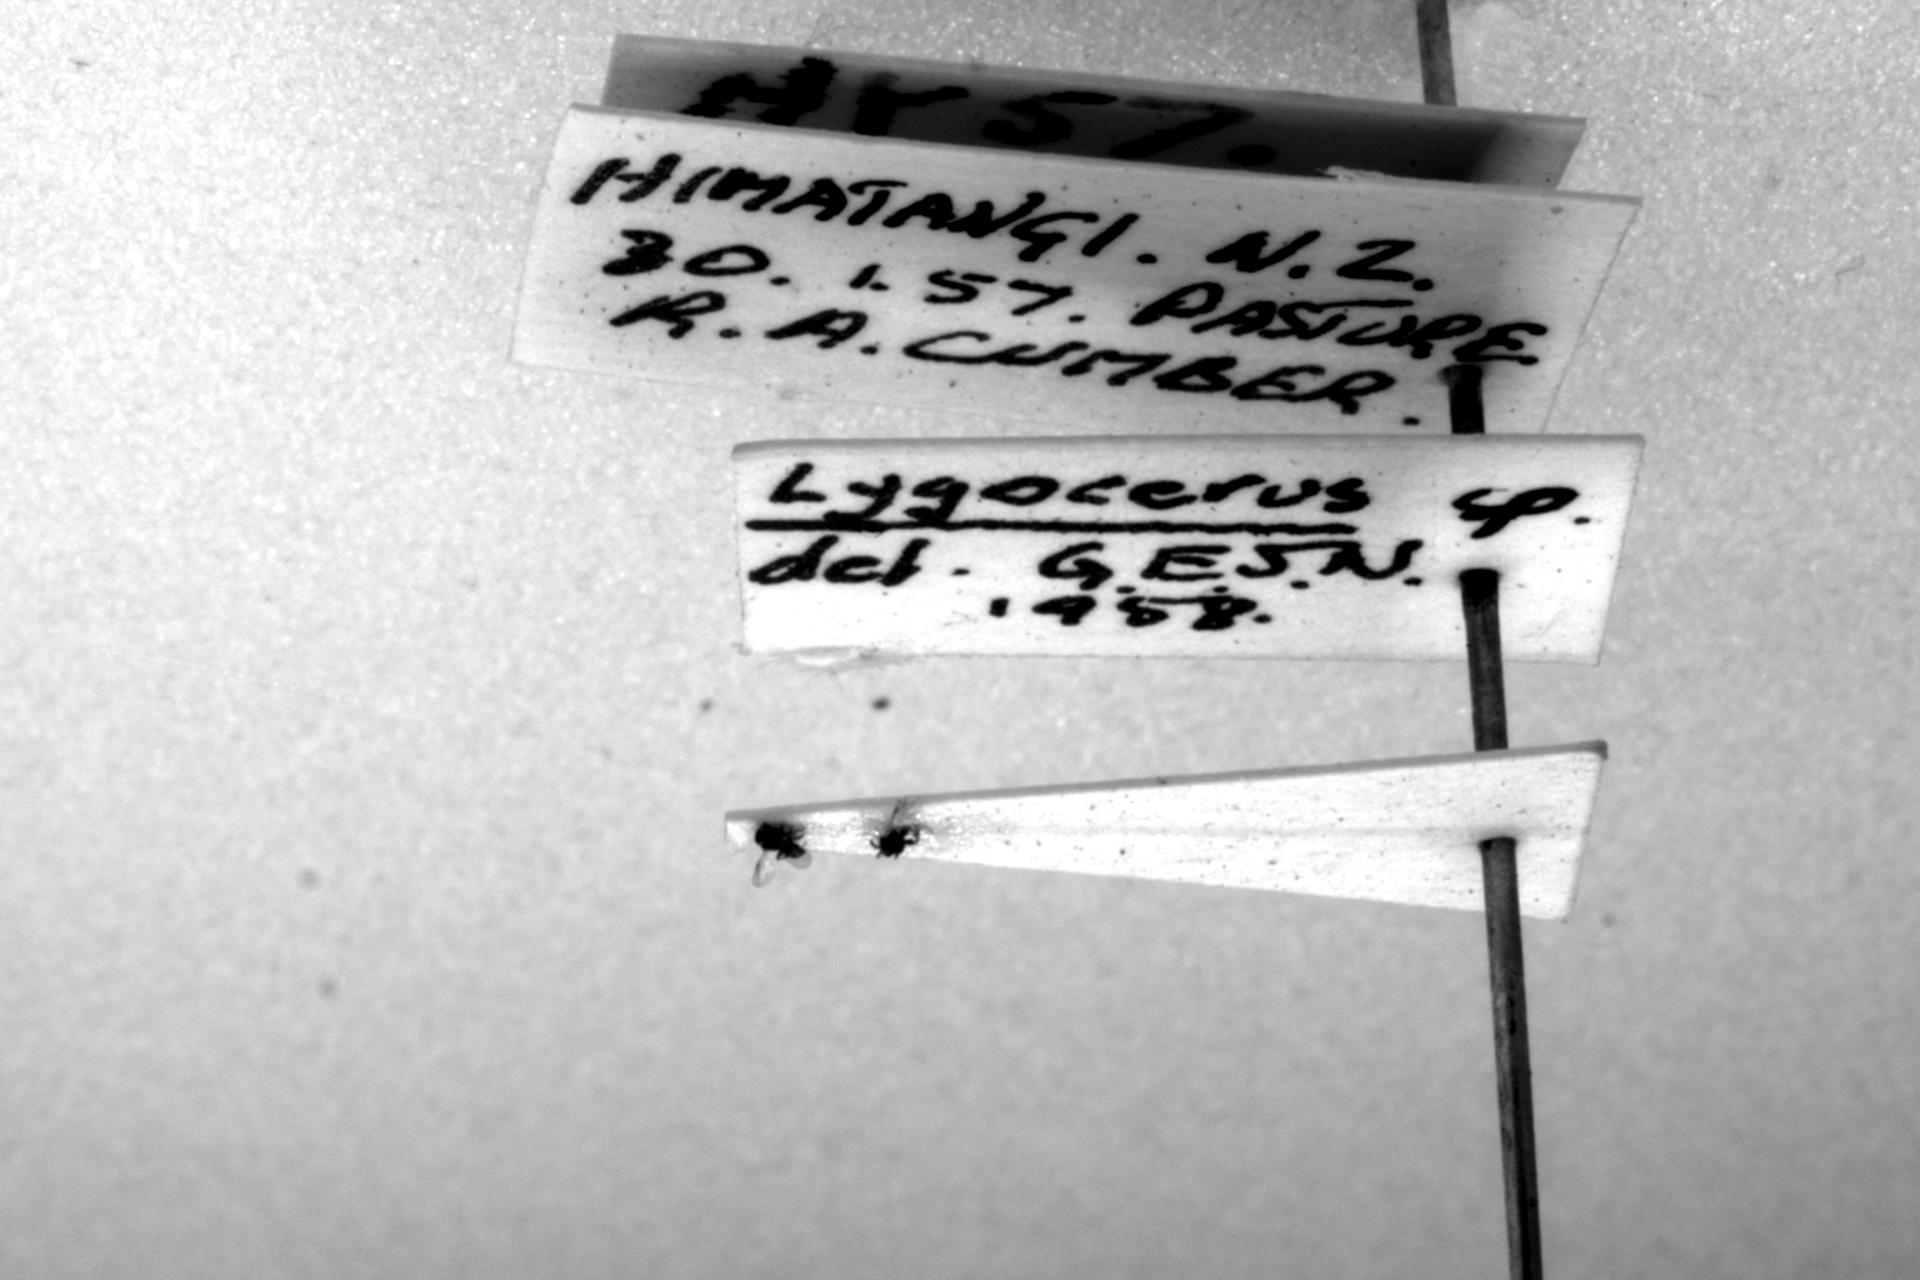 HY 57.
HIMATANGI. N.Z.
30. 1. 57. PASTURE
R. A. CUMBER.
Lygocerus sp.
det. G.E.J.N.
1958.